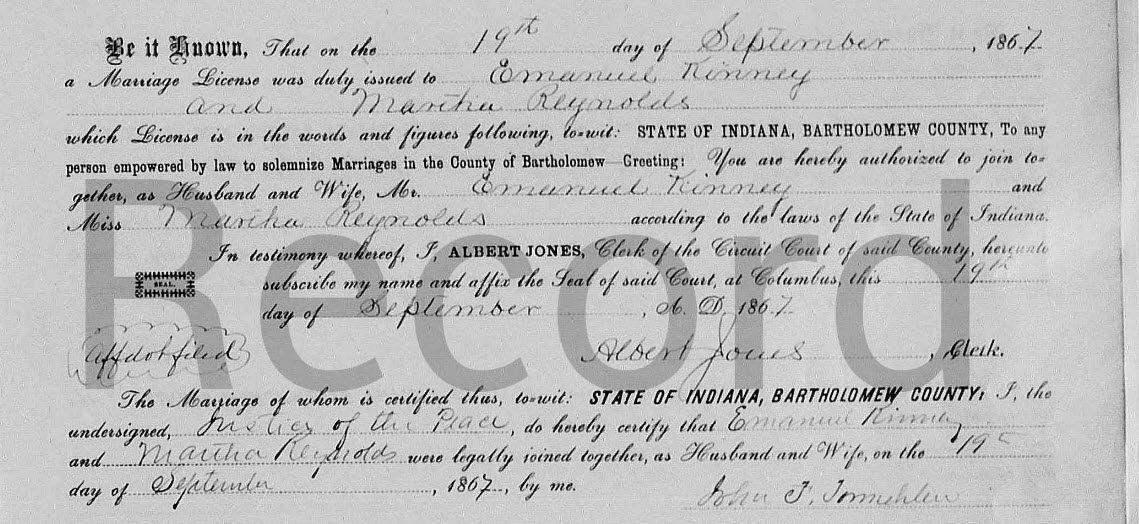 Be it Known, That on the 19th day of September, 1867
a Marriage License was duly issued to Emanuel Kinney
and Martha Reynolds
which License is in the words and figures following, to=wit: STATE OF INDIANA, BARTHOLOMEW COUNTY, To any
person empowered by law to solemnize Marriages in the County of Bartholomew—Greeting: You are hereby authorized to join to=
gether, as Husband and Wife, Mr. Emanuel Kinney and
Miss Martha Reynolds according to the laws of the State of Indiana.
In testimony whereof, I, ALBERT JONES, Clerk of the Circuit Court of said County, hereunto
SEAL. subscribe my name and affix the Seal of said Court, at Columbus, this 19th
day of September, A. D. 1867
Affdvt filed Albert Jones, Clerk.
The Marriage of whom is certified thus, to=wit: STATE OF INDIANA, BARTHOLOMEW COUNTY: I, the
undersigned, Justice of the Peace, do hereby certify that Emanuel Kinney
and Martha Reynolds were legally joined together, as Husband and Wife, on the 19
day of September, 1867, by me.
John F.
Record